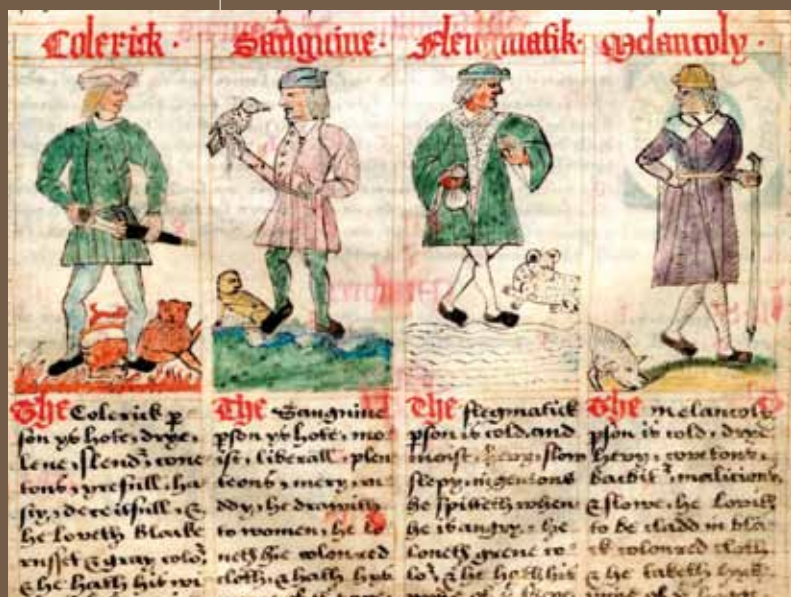 Colerick · Sanguine · Fleugmatik · Melancoly ·
The Colerick p
son ys hote, drye,
lene, slend², cove
tous, yrefull, ha
sty, deceitfull, &
he loveth blacke
russet & gray colo²,
& he hath hit wi
The Sanguine
pson ys hote, mo
ist, liberall, plen
teous, mery, ru
ddy, he drawith
to women, he lo
veth hie coloured
cloth, & hath hys
The flegmatick
pson is cold, and
moist, hevy, slow
slepy, ingenious
he spitteth when
he is angry, he
loveth grene co
lo², & he hath his
The melancoly
pson is cold, drye
hevy, covetous,
bacbit², malicious,
& slowe, he lovith
to be cladd in bla
ck coloured cloth
& he taketh hys